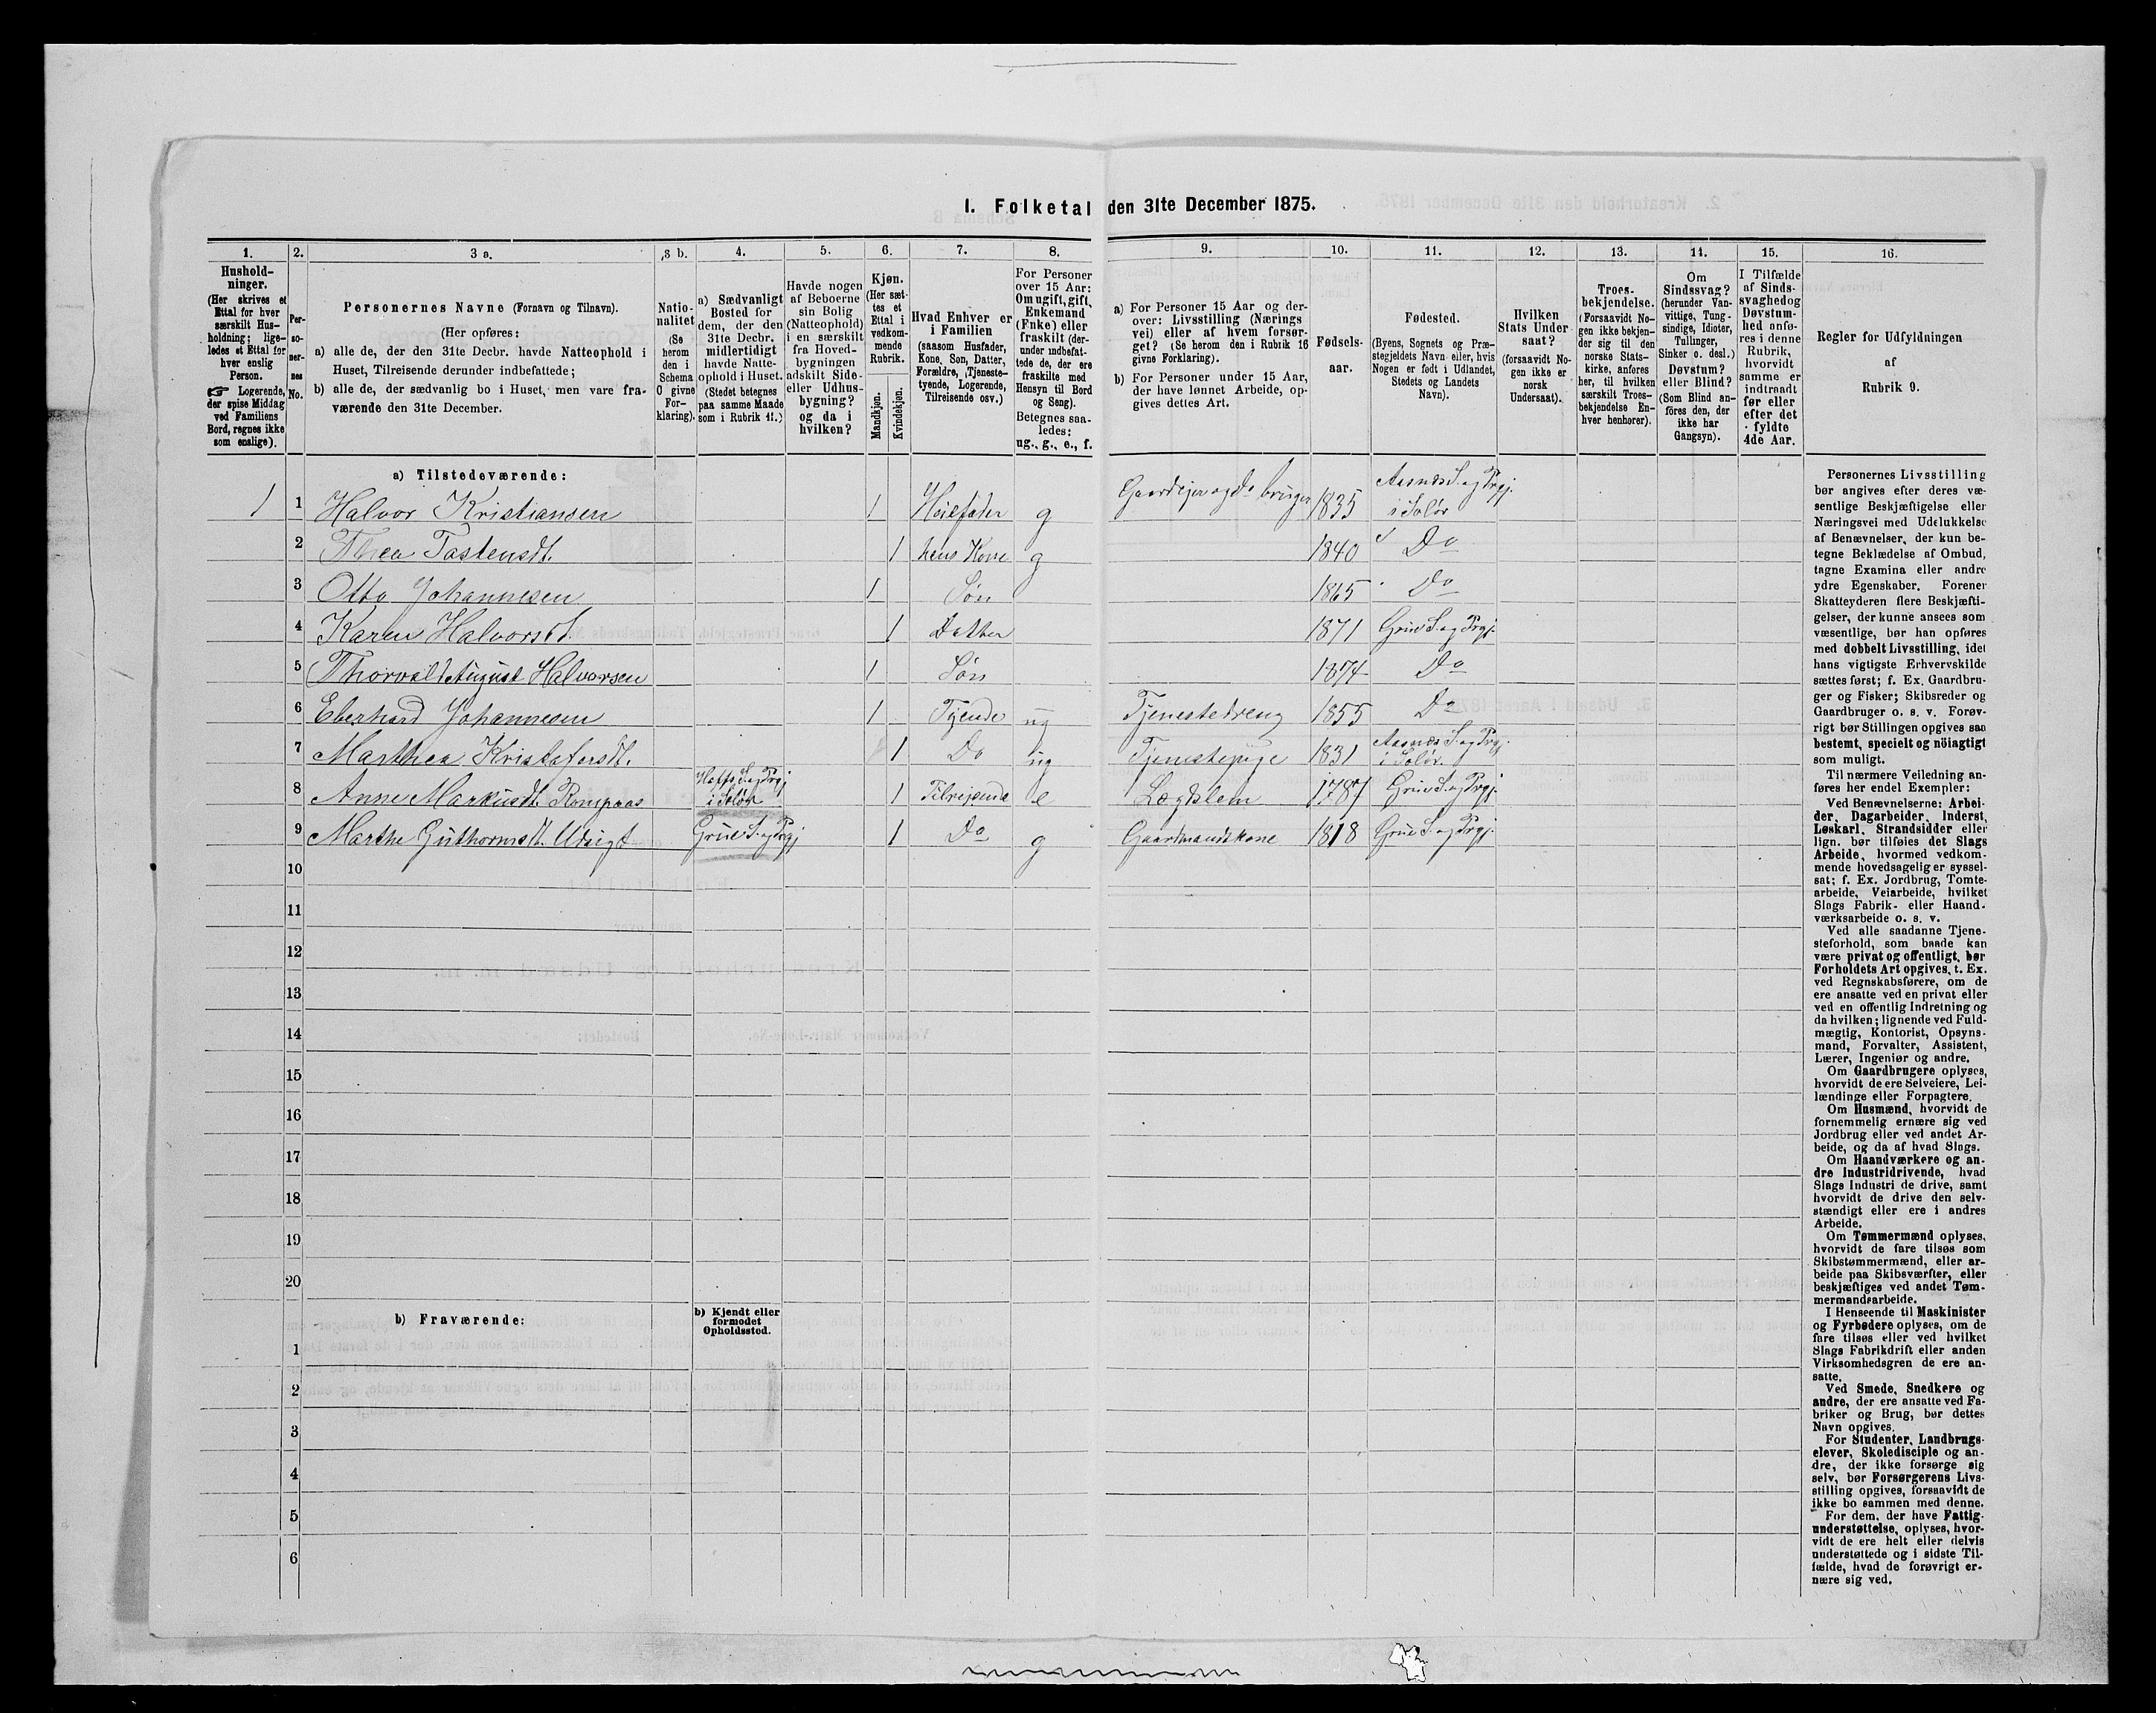 I. Folketal den 31te December 1875.
1. 2. 3 a. 3 b. 4. 5. 6. 7. 8. 9. 10. 11. 12. 13. 14. 15. 16.
Hushold-
ninger.
(Her skrives et
Ettal for hver
særskilt Hus-
holdning; lige-
ledes et Ettal for
hver enslig
Person.
☞ Logerende,
der spise Middag
ved Familiens
Bord, regnes ikke
som enslige).
Per-
so-
ner-
nes
No.
Personernes Navne (Fornavn og Tilnavn).
(Her opføres:
a) alle de, der den 31te Decbr. havde Natteophold i
Huset, Tilreisende derunder indbefattede;
b) alle de, der sædvanlig bo i Huset, men vare fra-
værende den 31te December.
Natio-
nalitet
(Se
herom
den i
Schema
O givne
For-
klaring).
a) Sædvanligt
Bosted for
dem, der den
31te Decbr.
midlertidigt
havde Natte-
ophold i Huset.
(Stedet betegnes
paa samme Maade
som i Rubrik 11.)
Havde nogen
af Beboerne
sin Bolig
(Natteophold)
i en særskilt
fra Hoved-
bygningen
adskilt Side-
eller Udhus-
bygning?
og da i
hvilken?
Kjøn.
(Her sæt-
tes et
Ettal i
vedkom-
mende
Rubrik.
Mandkjøn.
Kvindekjøn.
Hvad Enhver er
i Familien
(saasom Husfader,
Kone, Søn, Datter,
Forældre, Tjeneste-
tyende, Logerende,
Tilreisende osv.)
For Personer
over 15 Aar:
Om ugift, gift,
Enkemand
(Enke) eller
fraskilt (der-
under indbefat-
tede de, der ere
fraskilte med
Hensyn til Bord
og Seng).
Betegnes saa-
ledes:
ug., g., e., f.
a) For Personer 15 Aar og der-
over: Livsstilling (Nærings
vei) eller af hvem forsør-
get? (Se herom den i Rubrik 16
givne Forklaring).
b) For Personer under 15 Aar,
der have lønnet Arbeide, op-
gives dettes Art.
Fødsels-
aar.
Fødested.
(Byens, Sognets og Præ-
stegjeldets Navn eller, hvis
Nogen er født i Udlandet,
Stedets og Landets
Navn).
Hvilken
Stats Under-
saat?
(forsaavidt No-
gen ikke er
norsk
Undersaat).
Troes-
bekjendelse.
(Forsaavidt No-
gen ikke bekjen-
der sig til den
norske Stats-
kirke, anføres
her, til hvilken
særskilt Troes-
bekjendelse En-
hver henhører).
Om
Sindssvag?
(herunder Van-
vittige, Tung-
sindige, Idioter,
Tullinger,
Sinker o. desl.)
Døvstum?
eller Blind?
(Som Blind an-
føres den, der
ikke har
Gangsyn).
I Tilfælde
af Sinds-
svaghed og
Døvstum-
hed anfø-
res i denne
Rubrik,
hvorvidt
samme er
indtraadt
før eller
efter det
fyldte
4de Aar.
Regler for Udfyldningen
af
Rubrik 9.
a) Tilstedeværende:
1 1 Halvor Kristiansen 1 Husfader g Gaardejer og do bruger 1835 Aasnæs S. og Prgj. i Solør
2 Thea Tostensdt. 1 hans Kone g 1840 Do
3 Otto Johannesen 1 Søn 1865 Do
4 Karen Halvorsdt. 1 Datter 1871 Grue S. og Prgj.
5 Thorvald August Halvorsen 1 Søn 1874 Do
6 Eberhard Johannesen 1 Tyende ug Tjenestedreng 1855 Do
7 Marthea Kristofersdt. 1 Do ug Tjenestepige 1831 Aasnæs S. og Prgj. i Solør.
8 Anne Markusdt. Rompaas Hoffs S. og Prgj i Solør 1 Tilrejsende e Lægdslem 1787 Grue S. og Prgj.
9 Marthe Guthormsdt. Udsigt Grue S. og Prgj 1 Do g Gaardmandskone 1818 Grue S. og Prgj.
10
11
12
13
14
15
16
17
18
19
20
b) Fraværende:
b) Kjendt eller
formodet
Opholdssted.
1
2
3
4
5
6
Personernes Livsstilling
bør angives efter deres væ-
sentlige Beskjæftigelse eller
Næringsvei med Udelukkelse
af Benævnelser, der kun be-
tegne Beklædelse af Ombud,
tagne Examina eller andre
ydre Egenskaber. Forener
Skatteyderen flere Beskjæfti-
gelser, der kunne ansees som
væsentlige, bør han opføres
med dobbelt Livsstilling, idet
hans vigtigste Erhvervskilde
sættes først; f. Ex. Gaardbru-
ger og Fisker; Skibsreder og
Gaardbruger o. s. v. Forøv-
rigt bør Stillingen opgives saa
bestemt, specielt og nöiagtigt
som muligt.
Til nærmere Veiledning an-
føres her endel Exempler:
Ved Benævnelserne: Arbei-
der, Dagarbeider, Inderst,
Løskarl, Strandsidder eller
lign. bør tilføies det Slags
Arbeide, hvormed vedkom-
mende hovedsagelig er syssel-
sat; f. Ex. Jordbrug, Tomte-
arbeide, Veiarbeide, hvilket
Slags Fabrik- eller Haand-
værksarbeide o. s. v.
Ved alle saadanne Tjene-
steforhold, som baade kan
være privat og offentligt, bør
Forholdets Art opgives, t. Ex.
ved Regnskabsførere, om de
ere ansatte ved en privat eller
ved en offentlig Indretning og
da hvilken; lignende ved Fuld-
mægtig, Kontorist, Opsyns-
mand, Forvalter, Assistent,
Lærer, Ingeniør og andre.
Om Gaardbrugere oplyses,
hvorvidt de ere Selveiere, Lei-
lændinge eller Forpagtere.
Om Husmænd, hvorvidt de
fornemmelig ernære sig ved
Jordbrug eller ved andet Ar-
beide, og da af hvad Slags.
Om Haandværkere og an-
dre Industridrivende, hvad
Slags Industri de drive, samt
hvorvidt de drive den selv-
stændigt eller ere i andres
Arbeide.
Om Tømmermænd oplyses,
hvorvidt de fare tilsøs som
Skibstømmermænd, eller ar-
beide paa Skibsværfter, eller
beskjæftiges ved andet Tøm-
mermandsarbeide.
I Henseende til Maskinister
og Fyrbødere oplyses, om de
fare tilsøs eller ved hvilket
Slags Fabrikdrift eller anden
Virksomhedsgren de ere an-
satte.
Ved Smede, Snedkere og
andre, der ere ansatte ved Fa-
briker og Brug, bør dettes
Navn opgives.
For Studenter, Landbrugs-
elever, Skoledisciple og an-
dre, der ikke forsørge sig
selv, bør Forsørgerens Livs-
stilling opgives, forsaavidt de
ikke bo sammen med denne.
For dem, der have Fattig-
understøttelse, oplyses, hvor-
vidt de ere helt eller delvis
understøttede og i sidste Til-
fælde, hvad de forøvrigt er-
nære sig ved.